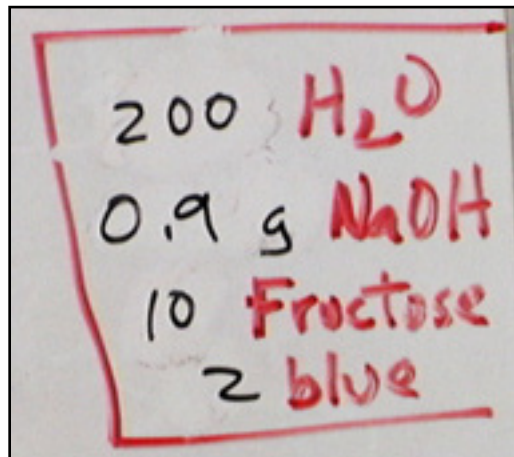 200 H₂O
0.9 g NaOH
10 Fructose
2 blue